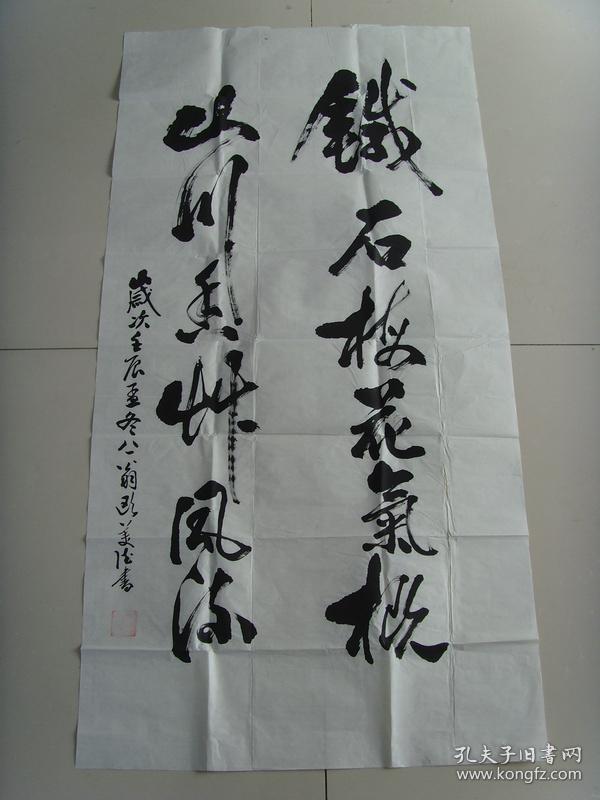 鐵石梅花氣概
山川香艸風流
歲次壬辰孟冬八八翁歐美德書
孔夫子旧書网
www.kongfz.com